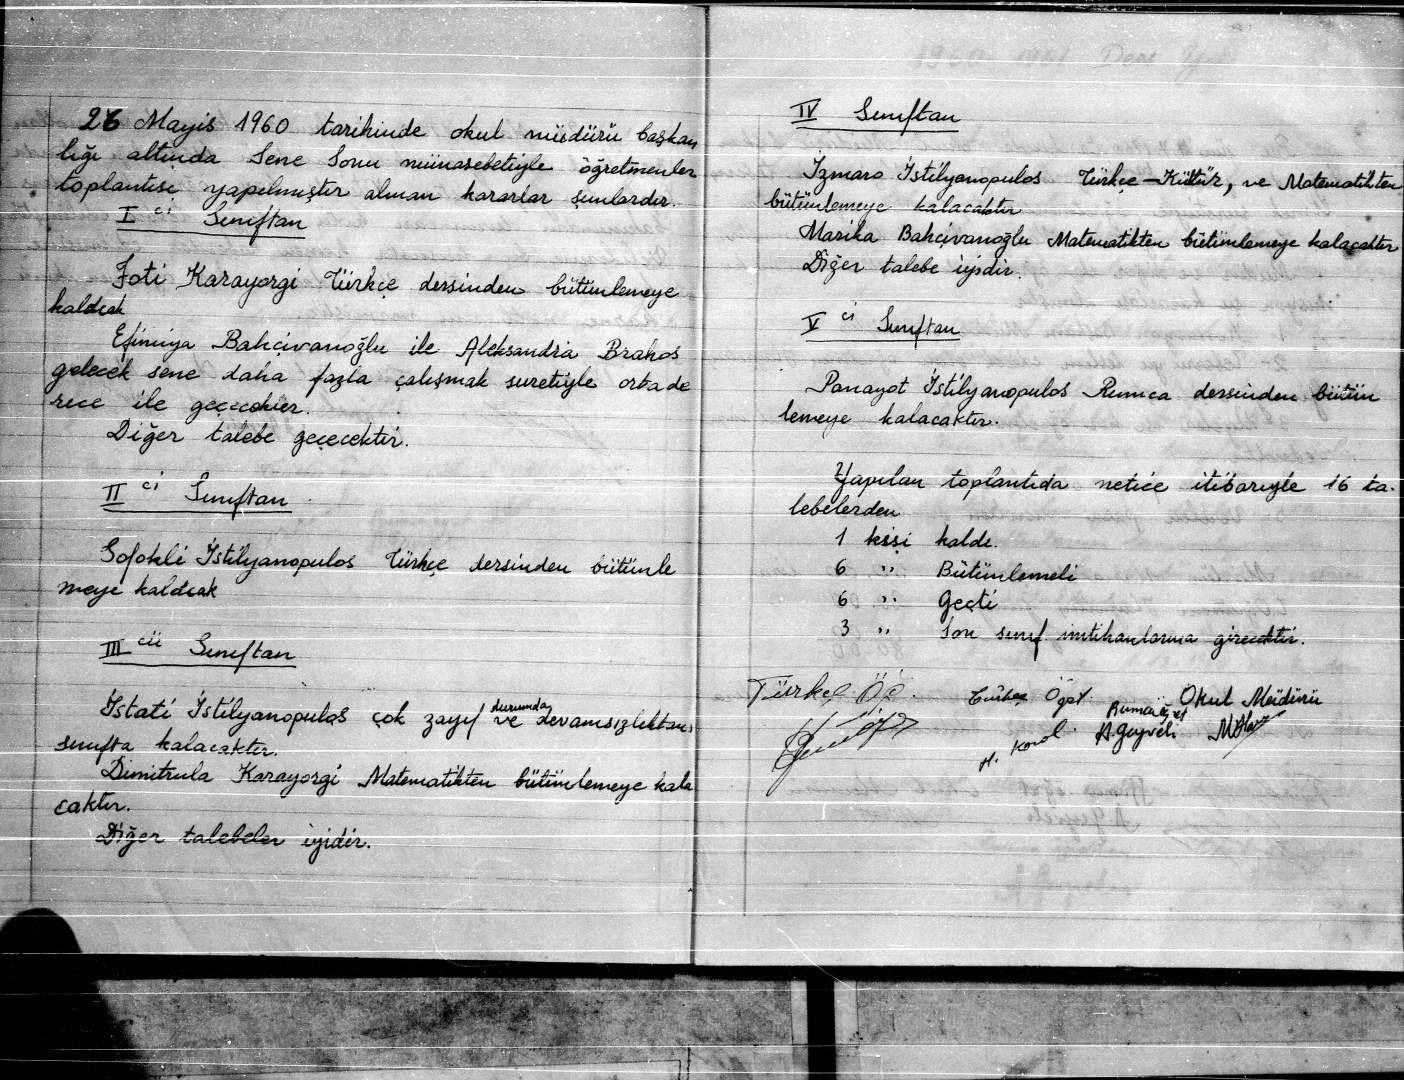 26 Mayis 1960 tarihinde okul müdürü başkan
lığı altında Sene Sonu münasebetiyle öğretmenler
toplantısı yapılmıştır alınan kararlar şunlardır.
I ci Sınıftan
Foti Karayorgi Türkçe dersinden bütünlemeye
kaldıcak
Efiminya Bahçivanoğlu ile Aleksandra Brahos
gelecek sene daha fazla çalışmak suretiyle orta de
rece ile geçecekler.
Diğer talebe geçecektir.
II ci Sınıftan
Sofokli İstilyanopulos Türkçe dersinden bütünle
meye kaldıcak
III cü Sınıftan
İstati İstilyanopulos çok zayıf durumda ve devamsızlıktan
sınıfta kalacaktır.
Dimitrula Karayorgi Matematikten bütünlemeye kala
caktır.
Diğer talebeler iyidir.
IV Sınıftan
İzmaro İstilyanopulos Türkçe-Kültür, ve Matematikten
bütünlemeye kalacaktır
Marika Bahçivanoğlu Matematikten bütünlemeye kalacaktır
Diğer talebe iyidir.
V ci Sınıftan
Panayot İstilyanopulos Rumca dersinden bütün
lemeye kalacaktır.
Yapılan toplantıda netice itibarıyle 16 ta-
lebelerden
1 kişi kaldı.
6 " Bütünlemeli
6 " Geçti
3 " Son sınıf imtihanlarına girecektir.
Türkçe Öğ. Türkçe Öğrt. Okul Müdürü
Rumca Öğrt
A. Geyveli